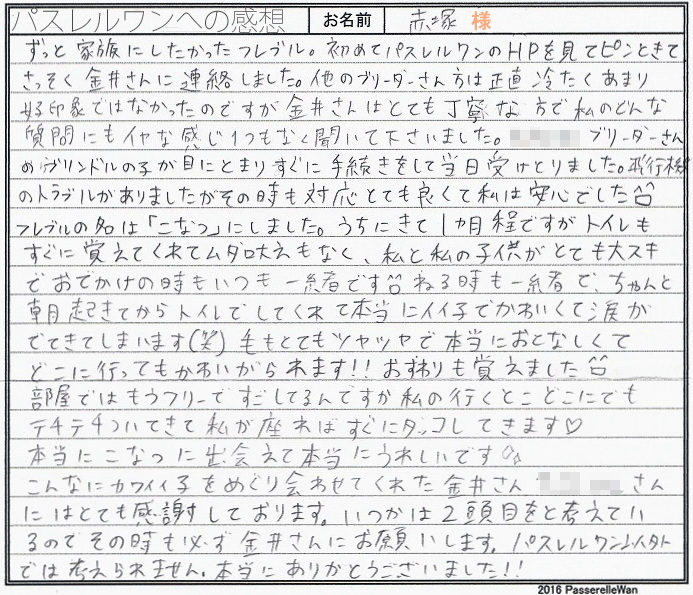 パスレルワンへの感想 お名前 赤塚 様
ずっと家族にしたかったフレブル。初めてパスレルワンのHPを見てピンときて
さっそく金井さんに連絡しました。他のブリーダーさん方は正直冷たくあまり
好印象ではなかったのですが金井さんはとても丁寧な方で私のどんな
質問にもイヤな感じ1つもなく聞いて下さいました。 ブリーダーさん
のブリンドルの子が目にとまりすぐに手続きをして当日受けとりました。飛行機
のトラブルがありましたがその時も対応とても良くて私は安心でした
フレブルの名は「こなつ」にしました。うちにきて1ヵ月程ですがトイレも
すぐに覚えてくれてムダ吠えもなく、私と私の子供がとても大スキ
でおでかけの時もいつも一緒です ねる時も一緒で、ちゃんと
朝起きてからトイレでしてくれて本当にイイ子でかわいくて涙が
でてきてしまいます(笑)毛もとてもツヤツヤで本当におとなしくて
どこに行ってもかわいがられます!!おすわりも覚えました
部屋ではもうフリーですごしてるんですが私の行くとこどこにでも
テチテチついてきて私が座ればすぐにダッコしてきます♡
本当にこなつに出会えて本当にうれしいです
こんなにカワイイ子をめぐり会わせてくれた金井さん さん
にはとても感謝しております。いつかは2頭目をと考えてい
るのでその時も必ず金井さんにお願いします。パスレルワン以外
では考えられません。本当にありがとうございました!!
2016 PasserelleWan